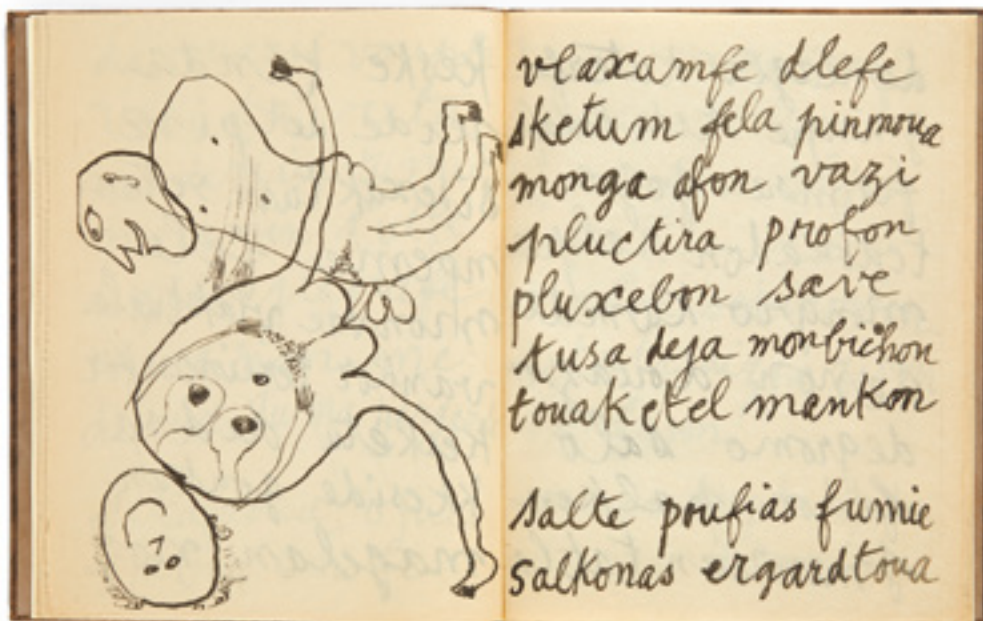 vlaxamfe dlefe
sketum fela pinmoua
monga afon vazi
pluctira profon
pluxcebon save
tusa deja monbichon
touaketel mankon
salte poufias fumie
salkonas ergardtoua